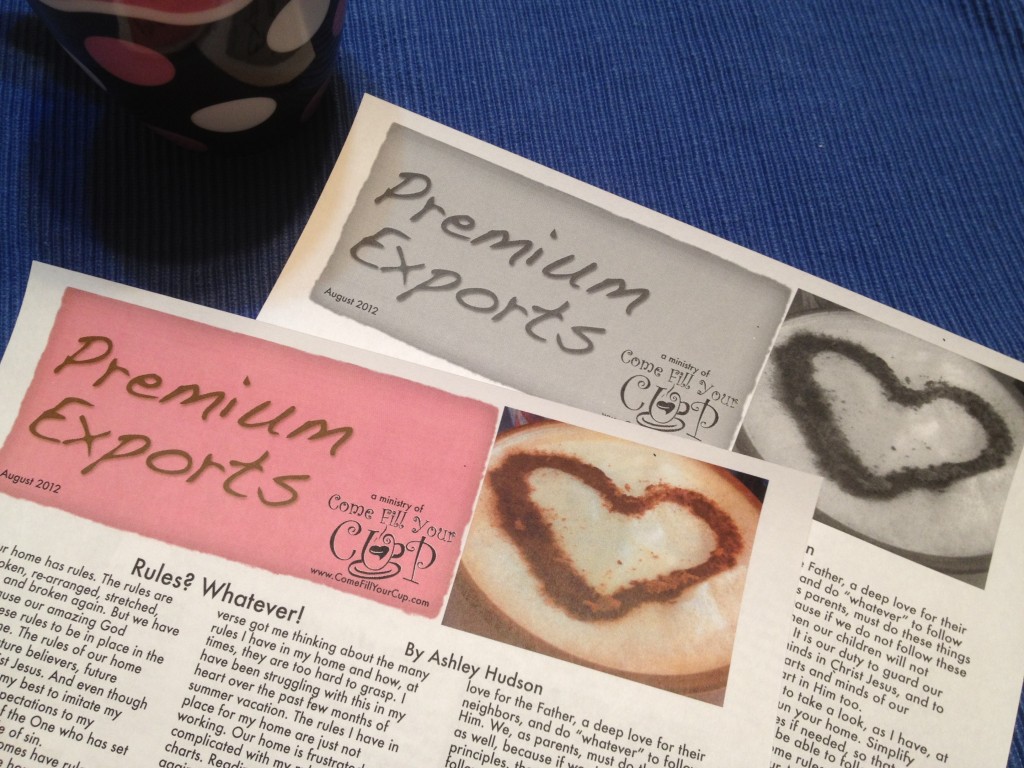 Premium
Exports
August 2012
a ministry of
Come Fill Your
CUP
Premium
Exports
August 2012
a ministry of
Come Fill Your
CUP
www.ComeFillYourCup.com
Rules? Whatever!
By Ashley Hudson
home has rules. The rules are
re-arranged, stretched,
and broken again. But we have
our amazing God
rules to be in place in the
The rules of our home
believers, future
Jesus. And even though
my best to imitate my
to my
of the One who has set
of sin,
verse got me thinking about the many
rules I have in my home and how, at
times, they are too hard to grasp. I
have been struggling with this in my
heart over the past few months of
summer vacation. The rules I have in
place for my home are just not
working. Our home is
complicated with my
charts.
love for the Father, a deep love for their
neighbors, and do "whatever" to follow
Him. We, as parents, must do
as well, because if
principles,
Father, a deep love for their
and do "whatever" to follow
parents, must do these things
if we do not follow these
our children will not
It is our duty to guard our
minds in Christ Jesus, and to
and minds of our
in Him too.
to take a look, as I have, at
your home. Simplify
if needed, so that
be able to